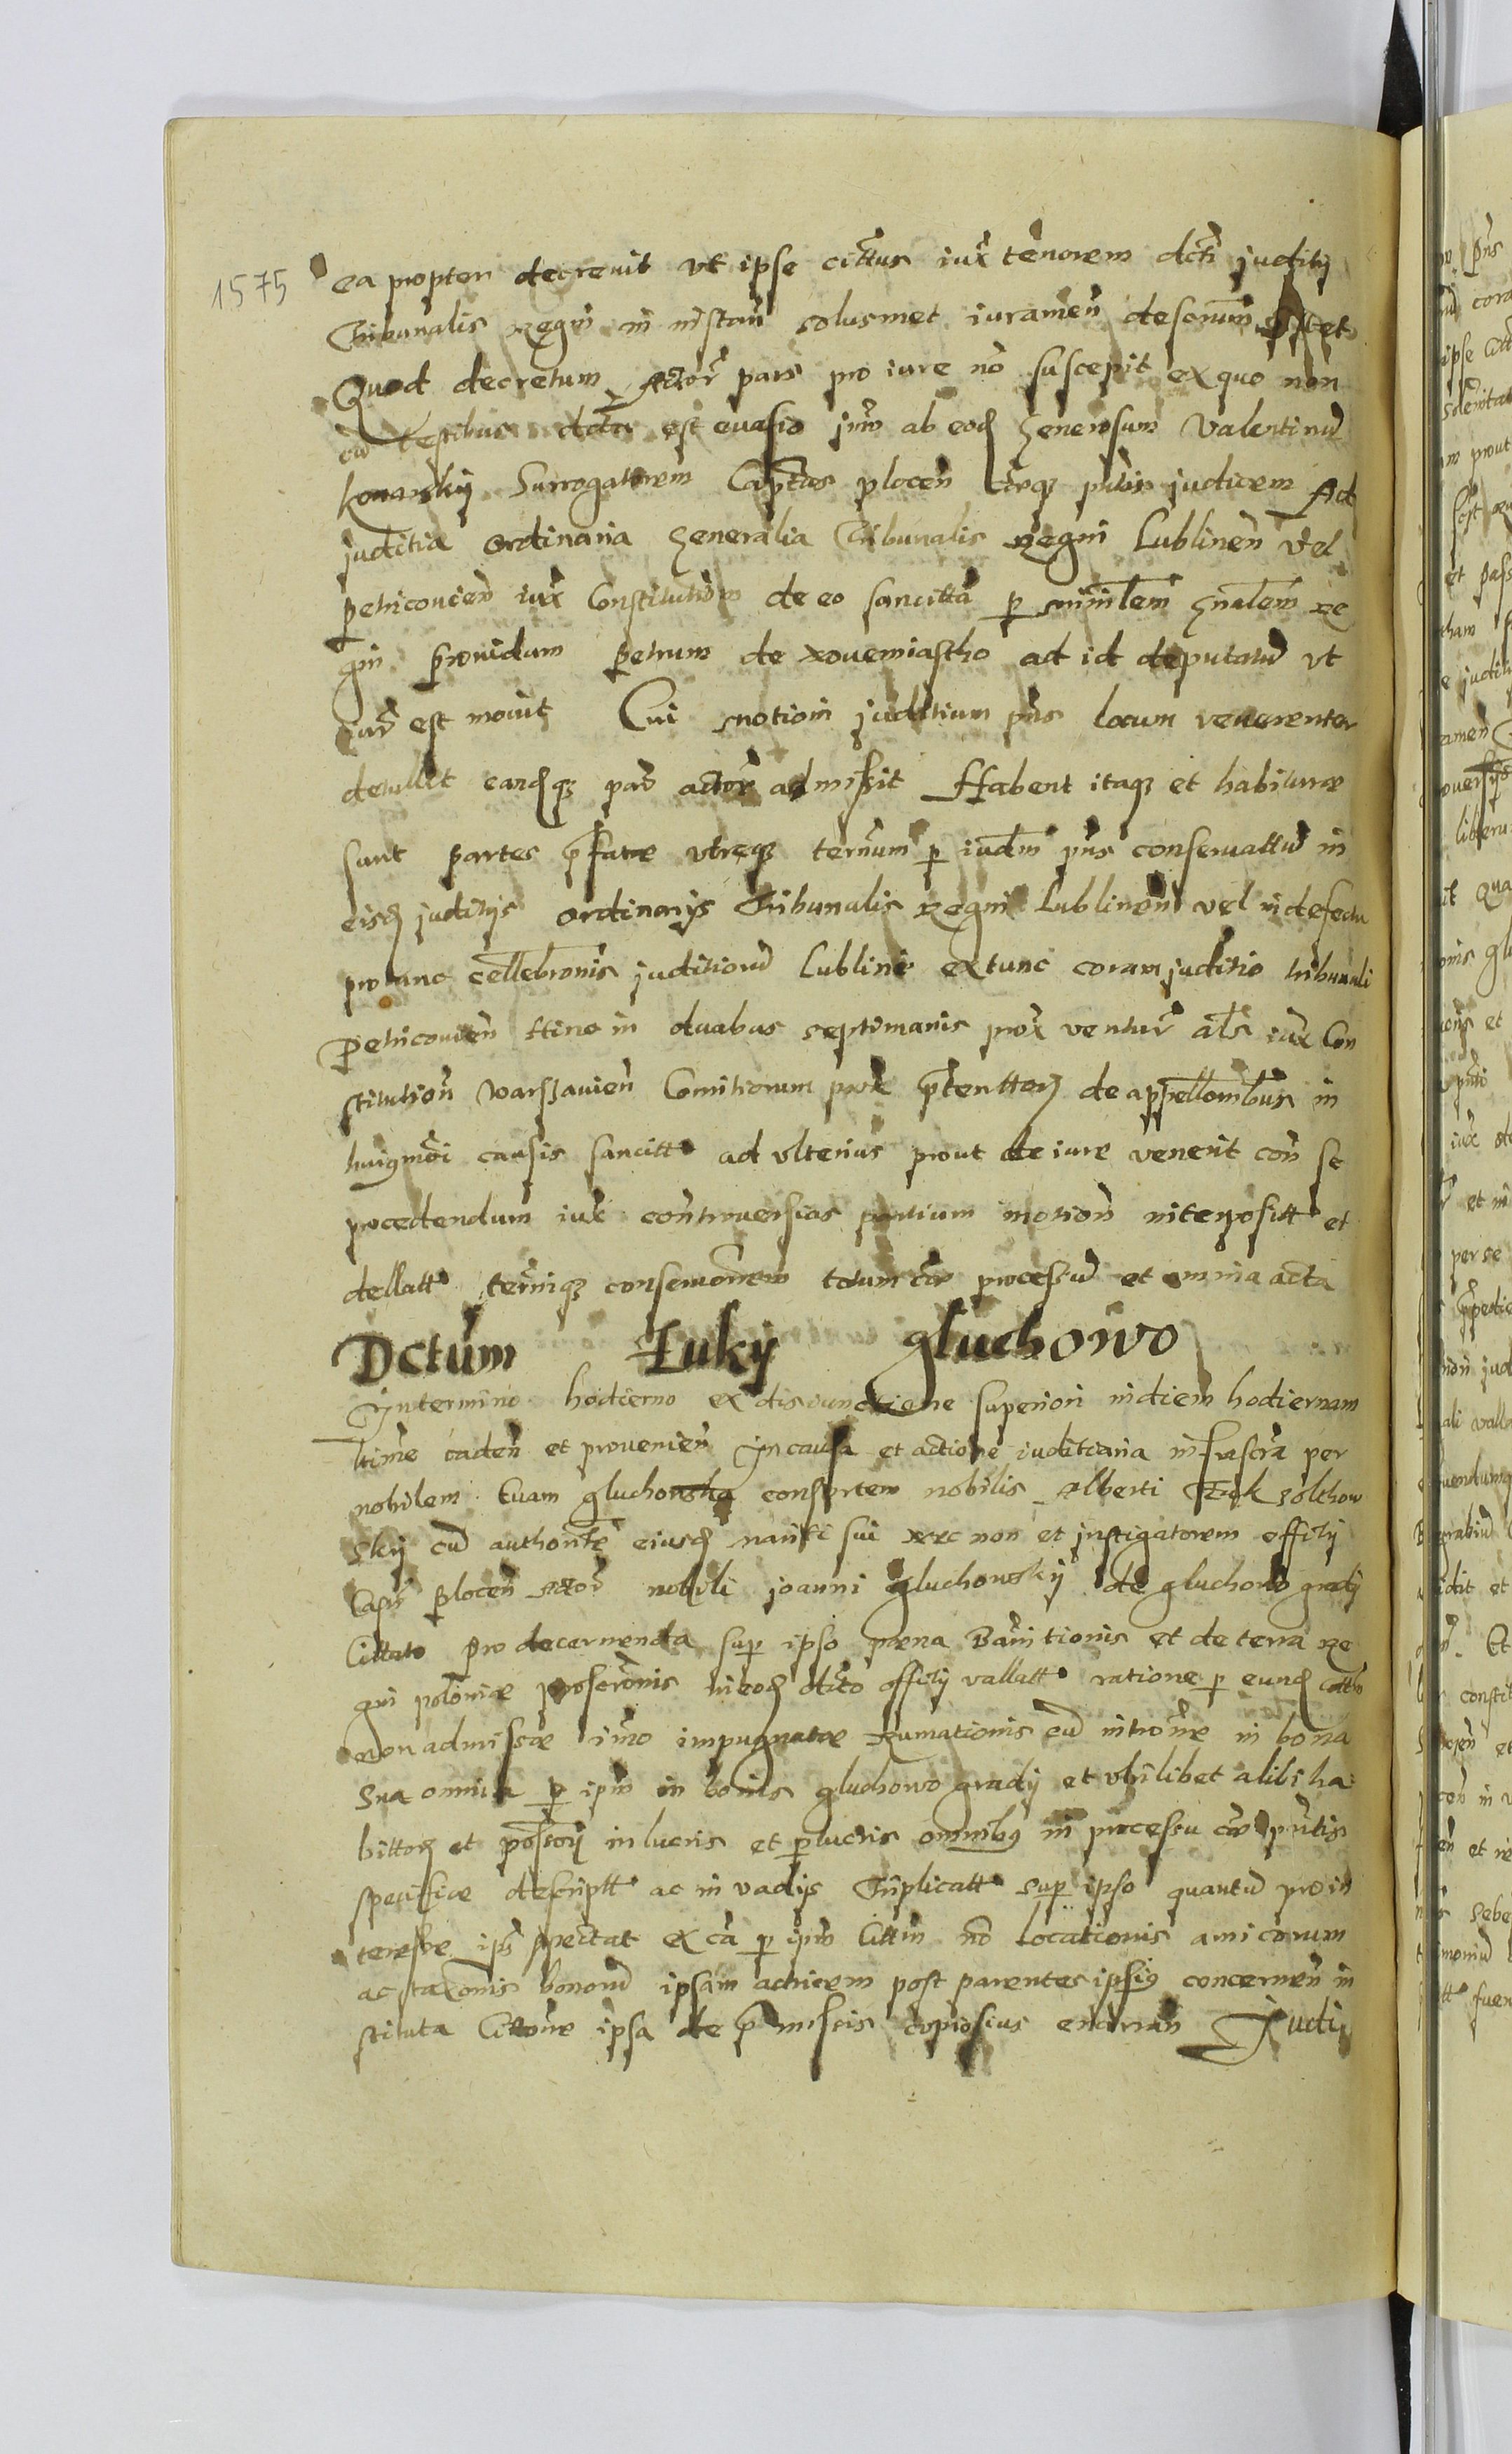 1575
ea propter decrevit vt ipse cittus iux tenorem dcti juditij
Tribunalis Regni in instan solusmet iuramen descrium
Quod decretum Actor pars pro iure no suscepit ex quo non
cu testibus dcta est euasio jmo ab eod generosum Valentinu
konarskij Surrogatorem Captas plocen eiusq pntis judicem Ad
juditia ordinaria generalia Tribunalis Regni Lublinen vel
petricouien iux Constitution de eo sancitta p minlem gnalem re
gni prouidum petrum de novemiastho ad id deputatu vt
iur est mouit Cui motioni juditium pns locum reuerenter
detullit eandq par actor admisit Habent itaq et habiture
sunt partes pfatae vtreq terminum p iudm pns conseruattu in
eisd juditijs ordinarijs Tribunalis regni Lublinen vel in defectu
pro tunc cellebronis juditioru Lublini ex tunc coram juditio tribunali
petricouien ttino in duabus septimanis prox ventur als iux Con
stitution warszauien Comitiorum ptenttor de appellombus in
huiqmoi causis sancitt ad vlterius prout de iure venerit con se
procedendum iux controuersias partium motion interpositt et
dellatt terniq conseruonem totum ca processu et omnia acta
Dctum Łukij gluchowo
In termino hodierno ex disiunctione superiori in diem hodiernam
ttime caden et prouenien In causa et actione iuditiaria infrascra per
nobilem Euam gluchowska consortem nobilis Alberti zolthow
skij cu authorite eiusd mariti sui nec non et jnstigatorem officij
Capis plocen Actor nobili joanni gluchowskij de gluchowo gradij
Cittato pro decernenda sup ipso pena Bannitionis et de terra re
gni poloniae proscronis in eod dicto officij vallatt ratione p eund cittu
non admissae imo impugnatae rumationis cu introne in bona
sua omnia p ipm in bonis gluchowo gradij et vbilibet alibi ha
bittor et possor in lucris et plucris omnibq in processu ca pntis
specifice descriptt ac in vadijs Triplicatt sup ipso quantu pro in
teresse ips spectat ex ca p ipm Cittm no Locationis amicorum
ac taxonis bonoru ipsam actricem post parentes ipsiq concernen in
stituta Cittone ipsa de pmissis copiosius enarran Judi